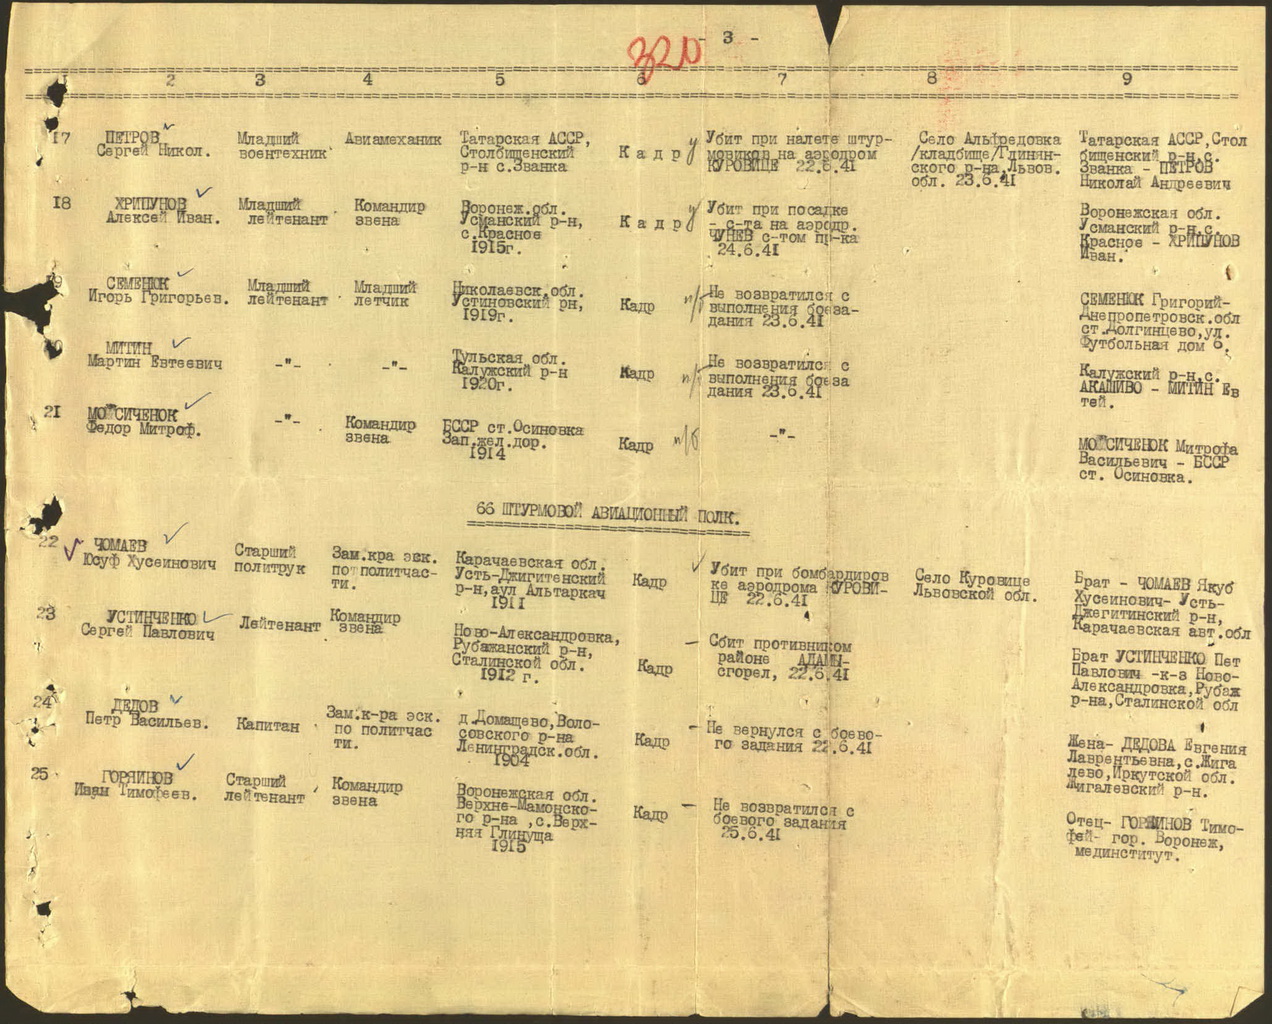 - 3 -
320
1 2 3 4 5 6 7 8 9
17 ПЕТРОВ Сергей Никол.
Младший воентехник
Авиамеханик
Татарская АССР,
Столбищенский
р-н с.Званка
Кадр
Убит при налете штур-
мовиков на аэродром
КУРОВИЦЕ 22.6.41
Село Альфредовка
/кладбище/Глинян-
ского р-на,Львов.
обл. 23.6.41
Татарская АССР,Стол
бищенский р-н,с.
Званка - ПЕТРОВ
Николай Андреевич
18 ХРИПУНОВ
Алексей Иван.
Младший
лейтенант
Командир
звена
Воронеж.обл.
Усманский р-н,
с.Красное
1915г.
Кадр
Убит при посадке
- с-та на аэродр.
ЧУНЕВ с-том пр-ка
24.6.41
Воронежская обл.
Усманский р-н,с.
Красное - ХРИПУНОВ
Иван.
19 СЕМЕНЮК
Игорь Григорьев.
Младший
лейтенант
Младший
летчик
Николаевск.обл.
Устиновский рн,
1919г.
Кадр
п/б
Не возвратился с
выполнения боеза-
дания 23.6.41
СЕМЕНЮК Григорий-
Днепропетровск.обл
ст.Долгинцево,ул.
Футбольная дом 6.
20 МИТИН
Мартин Евтеевич
-"-
-"-
Тульская обл.
Калужский р-н
1920г.
Кадр
п/б
Не возвратился с
выполнения боеза
дания 23.6.41
Калужский р-н,с.
АКАШИВО - МИТИН Ев
тей.
21 МОЙСИЧЕНОК
Федор Митроф.
-"-
Командир
звена
БССР ст.Осиновка
Зап.жел.дор.
1914
Кадр
п/б
-"-
МОЙСИЧЕНОК Митрофа
Васильевич - БССР
ст. Осиновка.
66 ШТУРМОВОЙ АВИАЦИОННЫЙ ПОЛК.
22 ЧОМАЕВ
Юсуф Хусеинович
Старший
политрук
Зам.кра эск.
по политчас-
ти.
Карачаевская обл.
Усть-Джигитенский
р-н,аул Альтаркач
1911
Кадр
Убит при бомбардиров
ке аэродрома КУРОВИ-
ЦЕ 22.6.41
Село Куровице
Львовской обл.
Брат - ЧОМАЕВ Якуб
Хусеинович- Усть-
Джегитинский р-н,
Карачаевская авт.обл
23 УСТИНЧЕНКО
Сергей Павлович
Лейтенант
Командир
звена
Ново-Александровка,
Рубежанский р-н,
Сталинской обл.
1912 г.
Кадр
Сбит противником
районе АДАМЫ-
сгорел, 22.6.41
Брат УСТИНЧЕНКО Пет
Павлович -к-з Ново-
Александровка,Рубеж
р-на,Сталинской обл
24 ДЕДОВ
Петр Васильев.
Капитан
Зам.к-ра эск.
по политчас
ти.
д.Домащево,Воло-
совского р-на
Ленинградск.обл.
1904
Кадр
Не вернулся с боево-
го задания 22.6.41
Жена- ДЕДОВА Евгения
Лаврентьевна,с.Жига
лево,Иркутской обл.
Жигалевский р-н.
25 ГОРЯИНОВ
Иван Тимофеев.
Старший
лейтенант
Командир
звена
Воронежская обл.
Верхне-Мамонско-
го р-на ,с.Верх-
няя Глинуща
1915
Кадр
Не возвратился с
боевого задания
25.6.41
Отец- ГОРЯИНОВ Тимо-
фей- гор. Воронеж,
мединститут.